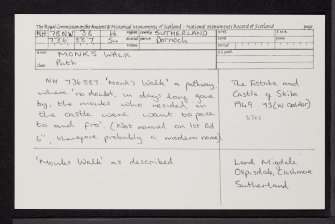 The Royal Commission on the Ancient & Historical Monuments of Scotland - National Monuments Record of Scotland
NH 78 NW 36 SUTHERLAND
736 887 Dornoch
MONK'S WALK
Path
NH 736887 'Monk's Walk' a pathway,
where 'no doubt, in days long gone
by, the monks who resided in
the castle were wont to pace
to and fro' (Not named on 1st Ed
6", therefore probably a modern name)
The Estate and
Castle of Skibo
1949 93 (W Calder)
'Monks Walk' as described
Lord Migdale
Ospisdale, Clashmore
Sutherland